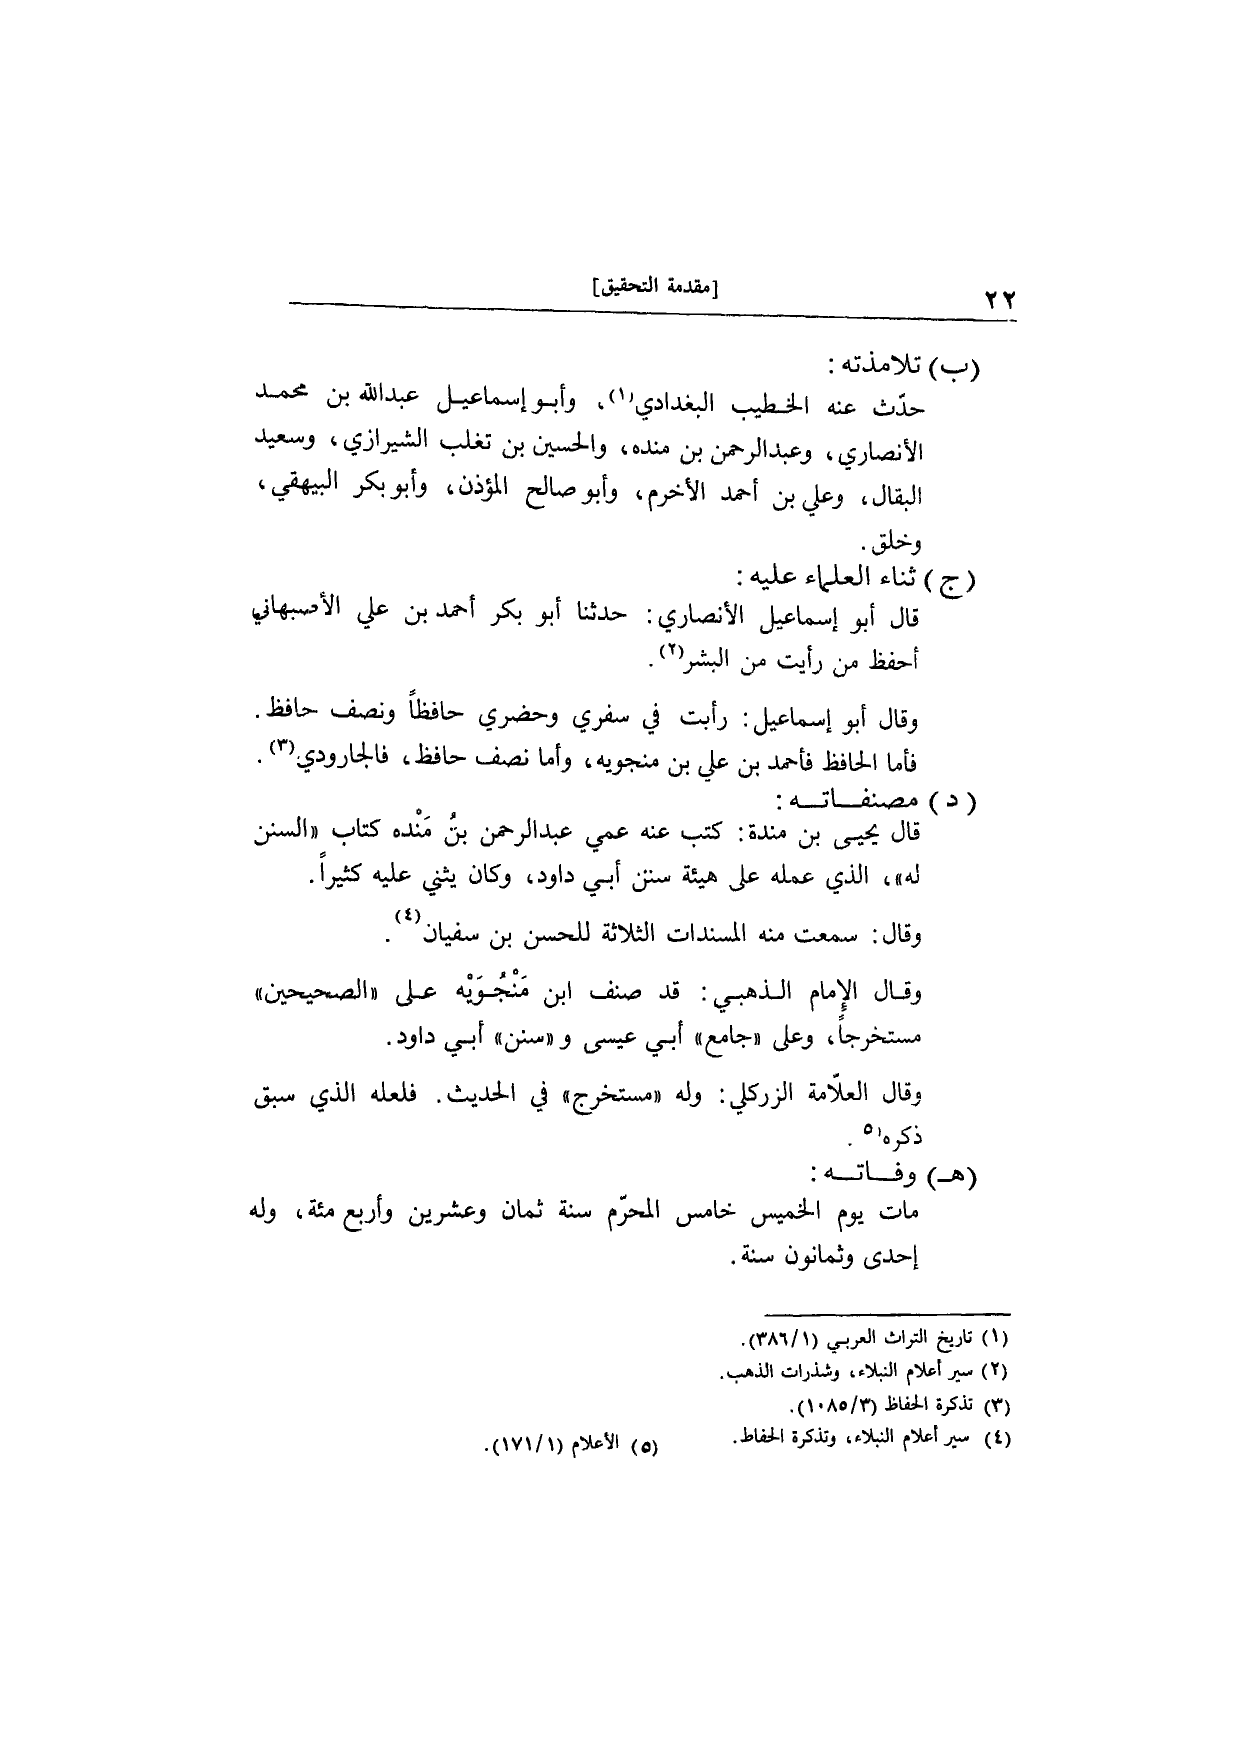 ٢٢
[مقدمة التحقيق]
(ب) تلامذته :
حدّث عنه الخطيب البغدادي(١)، وأبو إسماعيل عبدالله بن محمد
الأنصاري، وعبدالرحمن بن منده، والحسين بن تغلب الشيرازي، وسعيد
البقال، وعلي بن أحمد الأخرم، وأبو صالح المؤذن، وأبو بكر البيهقي،
وخلق.
(ج) ثناء العلماء عليه :
قال أبو إسماعيل الأنصاري: حدثنا أبو بكر أحمد بن علي الأصبهاني
أحفظ من رأيت من البشر(٢).
وقال أبو إسماعيل: رأيت في سفري وحضري حافظاً ونصف حافظ.
فأما الحافظ فأحمد بن علي بن منجويه، وأما نصف حافظ، فالجارودي(٣).
(د) مصنفاته :
قال يحيى بن مندة: كتب عنه عمي عبدالرحمن بنُ مَنْده كتاب «السنن
له»، الذي عمله على هيئة سنن أبي داود، وكان يثني عليه كثيراً.
وقال: سمعت منه المسندات الثلاثة للحسن بن سفيان(٤).
وقال الإمام الذهبي: قد صنف ابن مَنْجُوَيْه على «الصحيحين»
مستخرجاً، وعلى «جامع» أبي عيسى و «سنن» أبي داود.
وقال العلّامة الزركلي: وله «مستخرج» في الحديث. فلعله الذي سبق
ذكره٥.
(هـ) وفاته :
مات يوم الخميس خامس المحرّم سنة ثمان وعشرين وأربع مئة، وله
إحدى وثمانون سنة.
(١) تاريخ التراث العربي (٣٨٦/١).
(٢) سير أعلام النبلاء، وشذرات الذهب.
(٣) تذكرة الحفاظ (١٠٨٥/٣).
(٤) سير أعلام النبلاء، وتذكرة الحفاظ.
(٥) الأعلام (١٧١/١).